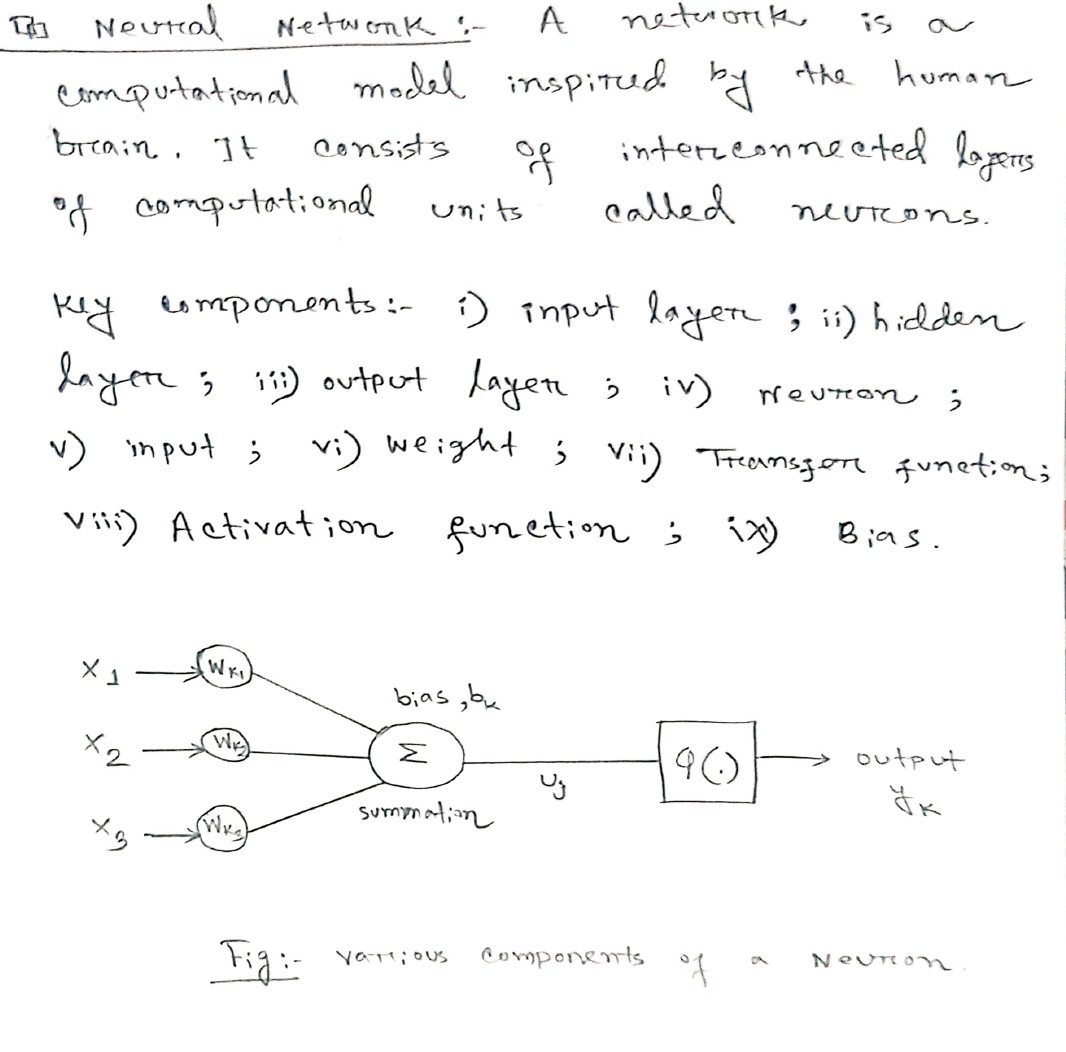 Neural Network :- A network is a
computational model inspired by the human
brain. It consists of interconnected layers
of computational units called neurons.
Key components :- i) input layer ; ii) hidden
layer ; iii) output layer ; iv) Neuron ;
v) input ; vi) weight ; vii) Transfer function ;
viii) Activation function ; ix) Bias.
x1 WK1
bias, bk
x2 WK2 Σ φ(.) output
uj yK
summation
x3 WK3
Fig :- various components of a Neuron.